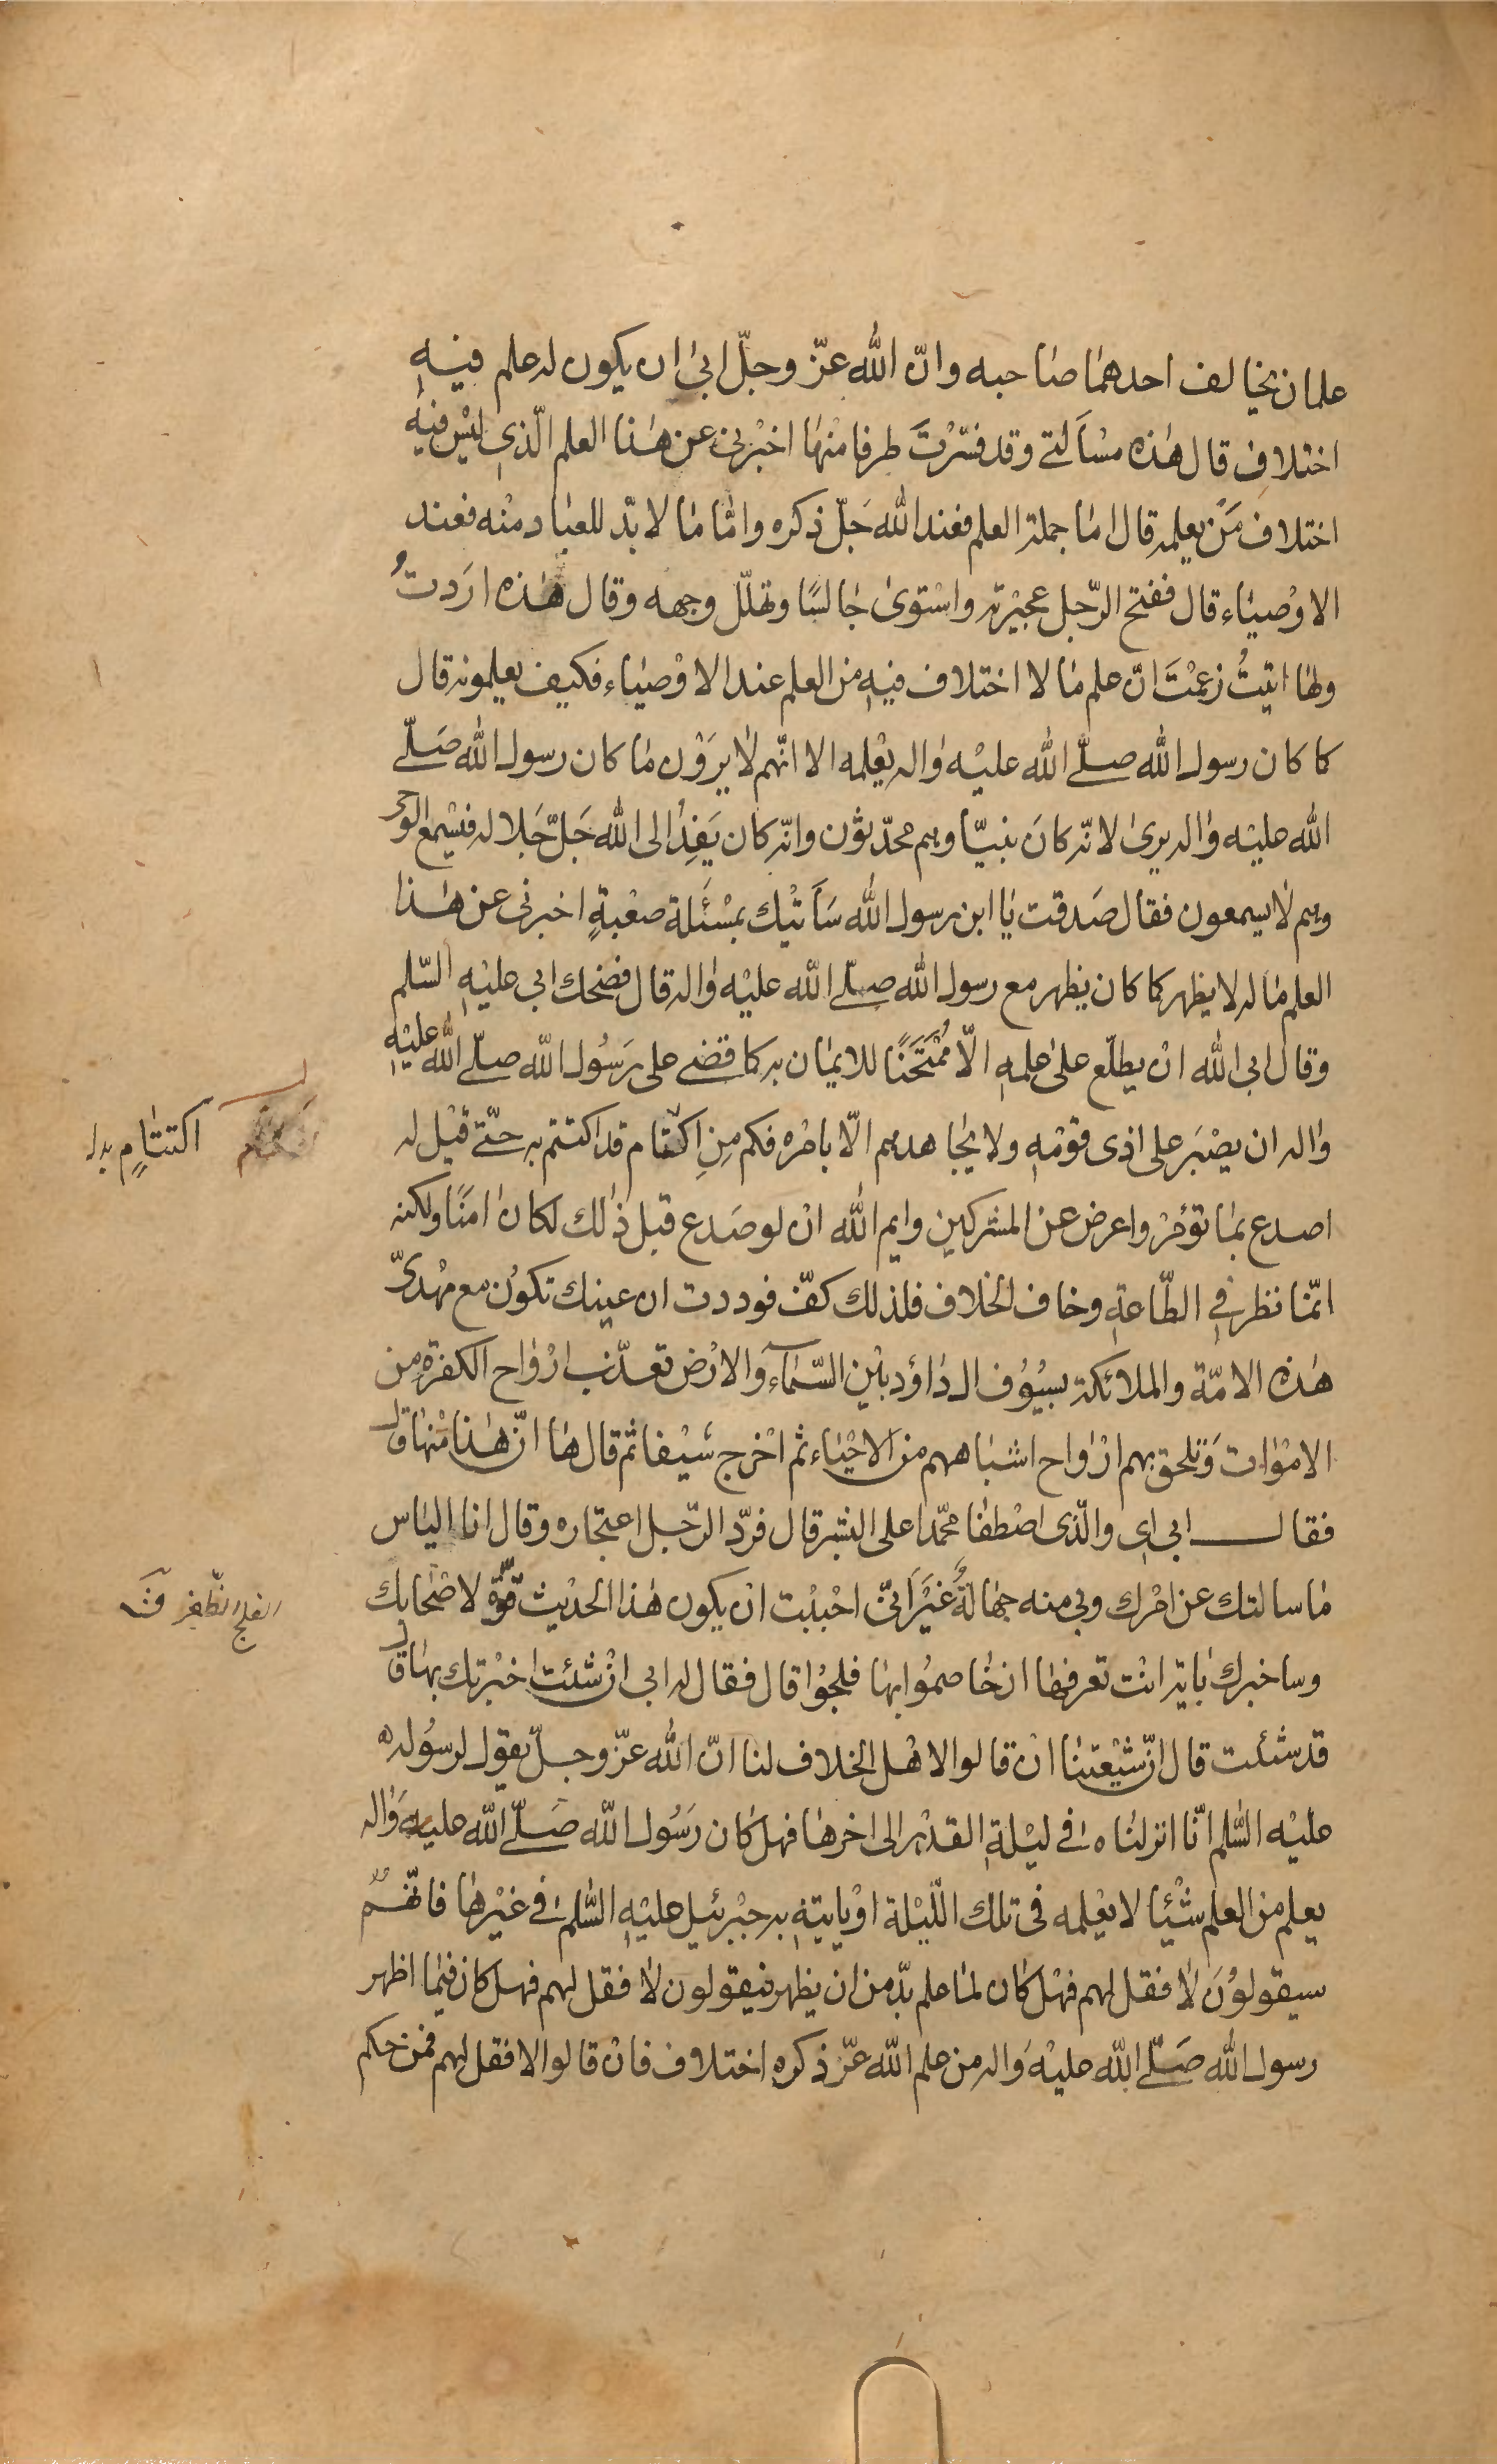 علمان يخالف احدهما صاحبه وانّ الله عزّ وجلّ ابى ان يكون له علم فيه
اختلاف قال هذه مسألتى وقد فسّرْتَ طرفا منها اخبرنى عن هذا العلم الّذى ليس فيه
اختلاف مَن يعلمه قال اما جملة العلم فعند الله جَلّ ذكره وامّا ما لا بدّ للعباد منه فعند
الاوْصياء قال ففتح الرّجل عجيرته واسْتوى جالسًا وتهلّل وجهه وقال هذه ارَدتُ
ولها اتيتُ زعمْتَ انّ علم ما لا اختلاف فيه من العلم عند الاوْصياء فكيف يعلمونه قال
كما كان رسول الله صلّى الله عليْه واله يعْلمه الا انّهم لا يرَوْن ما كان رسول الله صَلّى
الله عليْه واله يرى لانّه كانَ نبيّا وهم محدّثون وانّه كان يَفِدُ الى الله جَلّ جَلاله فيسْمع الوحى
وهم لا يسمعون فقال صَدقت يا ابن رسول الله سَآتيك بمسْئَلة صعْبةٍ اخبرنى عن هذا
العلم ما له لا يظهر كما كان يظهر مع رسول الله صلّى الله عليْه واله قال فضحك ابى عليْهِ السّلم
وقال ابى الله انْ يطلّع على علمهِ الّا مُمْتَحَنًا للايمان به كما قضى على رَسُول الله صلّى الله عليْهِ
واله ان يصْبَر على اذى قومْهِ ولا يجاهدهم الّا بامْره فكم مِنِ اكتتام قد اكتتم به حتّى قيْل له
اكتتامٍ بدل
اصدع بما تؤمْر واعرض عن المشركين وايم الله ان لو صَدع قبل ذلك لكان امَنًا ولكنه
انّما نظر فى الطّاعةِ وخاف الخلاف فلذلك كفّ فوددت ان عينك تكون مع مهْدىّ
هذه الامّة والملائكة بسيُوُف ال داؤد بيْن السّماۤء والارْض تعذّب ارْواح الكفرة من
الامْوات وَتلحق بهم ارْواح اشباههم من الاحْياء ثم اخْرج سيْفا ثم قال ها انّ هذا منْها قال
فقال ابى اى والّذى اصْطفا محمّدا على البشر قال فردّ الرّجل اعتجاره وقال انا الياس
ما سالتك عن امْرك وبى منه جهالةٌ غيْرَ انّى احْببْت انْ يكون هذا الحديْث قوّة لاصْحابك
الفلج الظفر
وساخبرك باية انْت تعرفها ان خاصموُا بها فلجوُا قال فقال له ابى انْ شئت اخبْرتك بها قال
قد شئت قال انّ شيْعتنا انْ قالوا لاهْل الخلاف لنا انّ الله عزّ وجلّ يقول لرسُوله
عليْه السّلم انّا انزلناه فى ليْلة القدْر الى اخرها فهل كان رَسُول الله صَلّى الله عليه وَاله
يعلم من العلم شيْئا لا يعْلمه فى تلك اللّيْلة اوْ ياتيْهِ به جبْرئيل عليْهِ السّلم فى غيْرها فانّهمْ
سيقولوُنَ لا فقل لهم فهل كان لما علم بدّ من ان يظهر فيقولون لا فقل لهم فهل كان فيما اظهر
رسول الله صَلّى الله عليْه وَاله من علم الله عزّ ذكره اختلاف فانْ قالوا لا فقل لهم فمن حكم